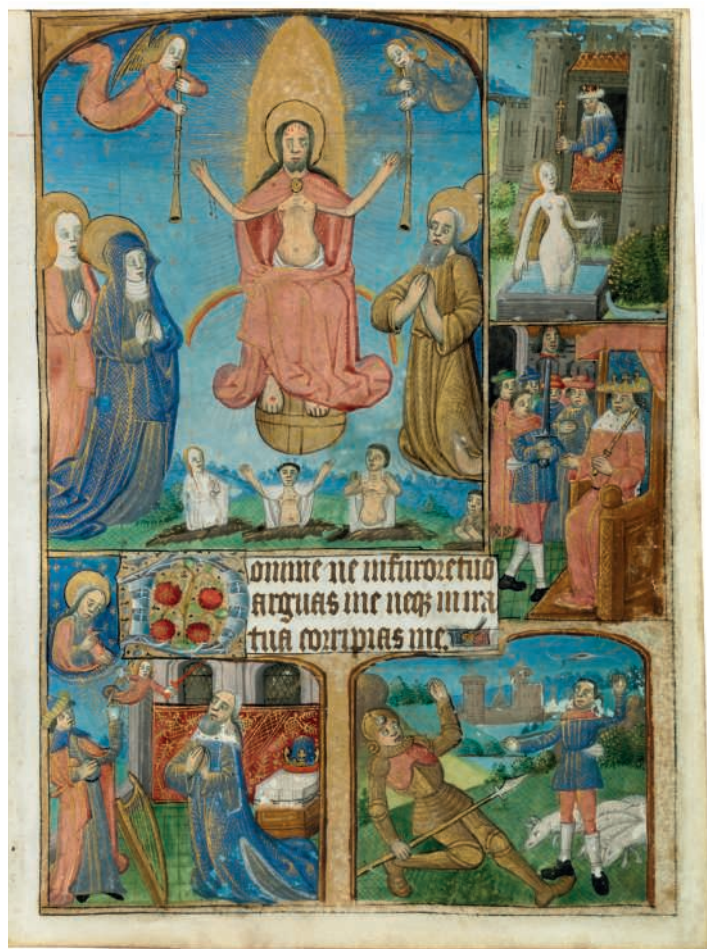 Domine ne infurore tuo
arguas me neqꝫ in ira
tua corripias me.